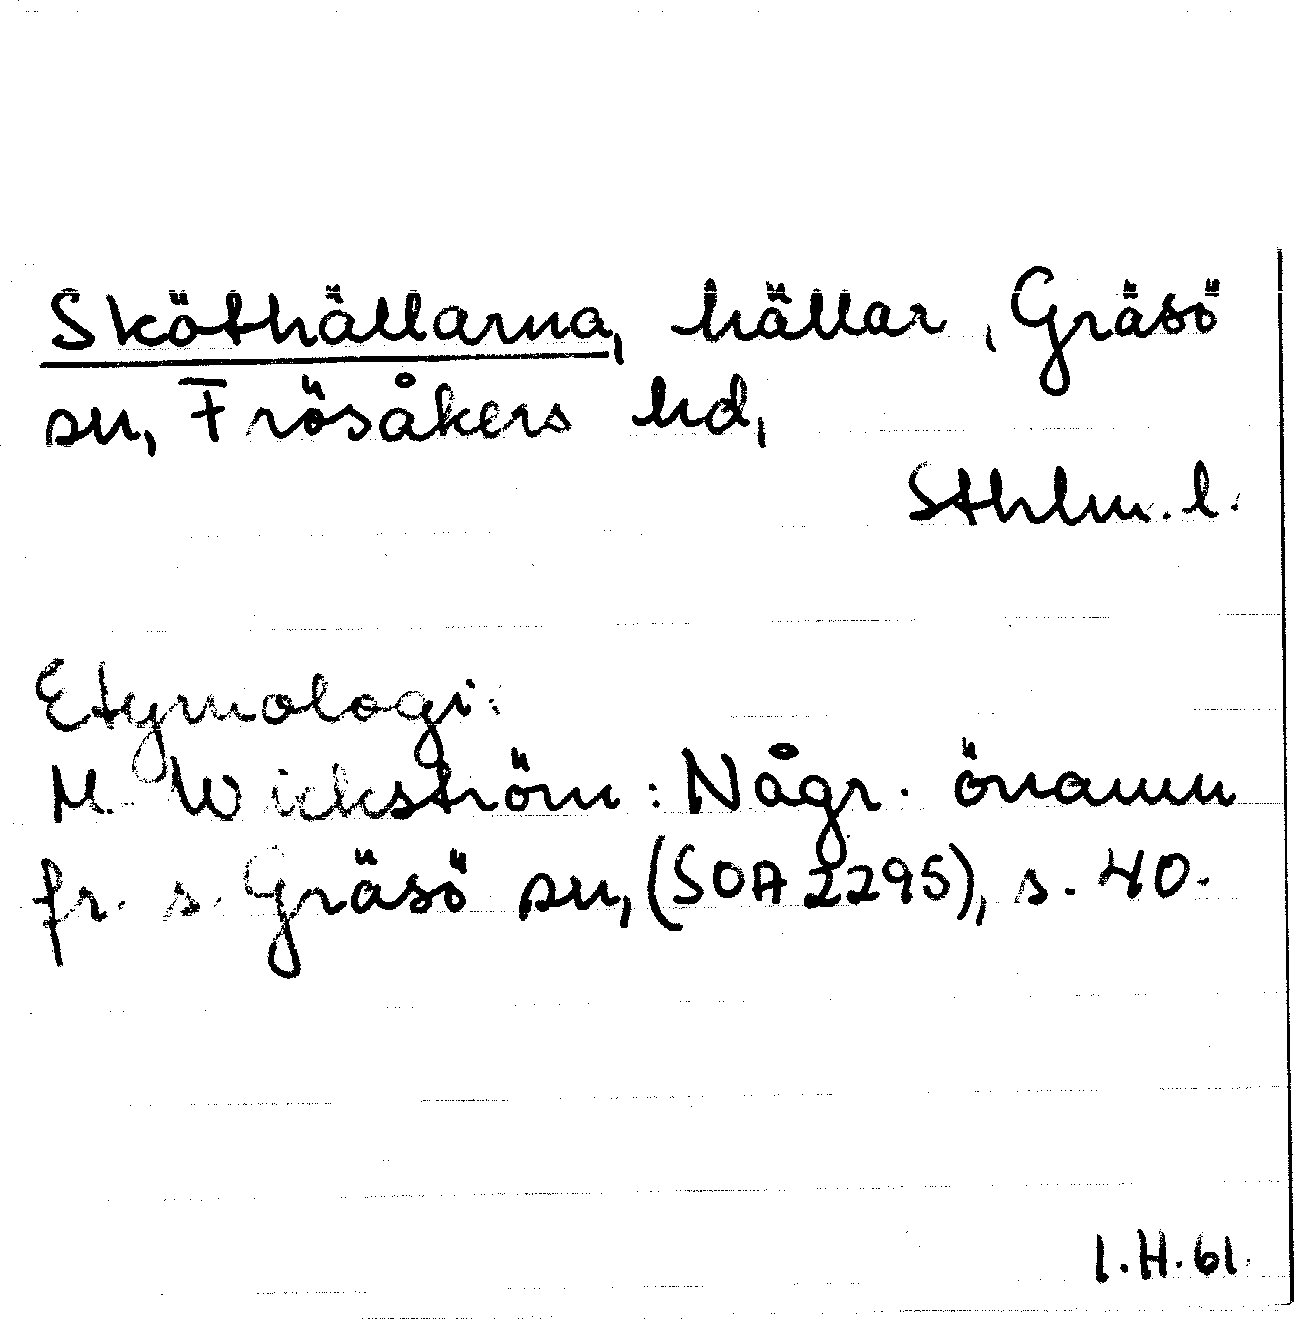 Sköthällarna, hällar, Gräsö
sn, Frösåkers hd,
Sthlm. l.
Etymologi:
M. Wickström: Någr. önamn
fr. s. Gräsö sn, (SOA 2295), s. 40.
I.H. 61.